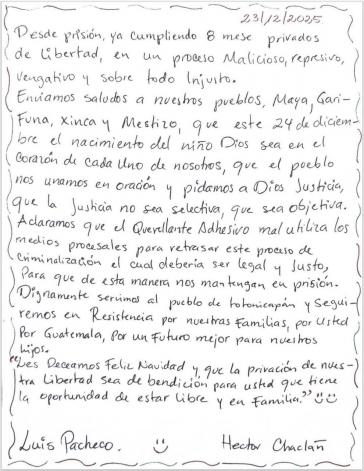 23/12/2025
Desde prisión, ya cumpliendo 8 mese privados
de Libertad, en un proceso Malicioso, represivo,
vengativo y sobre todo Injusto.
Enviamos saludos a nuestros pueblos, Maya, Gari-
Funa, Xinca y Mestizo, que este 24 de diciem-
bre el nacimiento del niño Dios sea en el
Corazón de cada Uno de nosotros, que el pueblo
nos unamos en oración y pidamos a Dios Justicia,
que la Justicia no sea selectiva, que sea objetiva.
Aclaramos que el Querellante Adhesivo mal utiliza los
medios procesales para retrasar este proceso de
Criminalización el cual debería ser legal y Justo,
Para que de esta manera nos mantengan en prisión.
Dignamente servimos al pueblo de totonicapán y Segui-
remos en Resistencia por nuestras Familias, por Usted
Por Guatemala, Por un Futuro mejor para nuestros
hijos.
"Les Deceamos Feliz Navidad y que la privación de nues-
tra Libertad sea de bendición para usted que tiene
la oportunidad de estar Libre y en Familia."
Luis Pacheco. Hector Chaclán